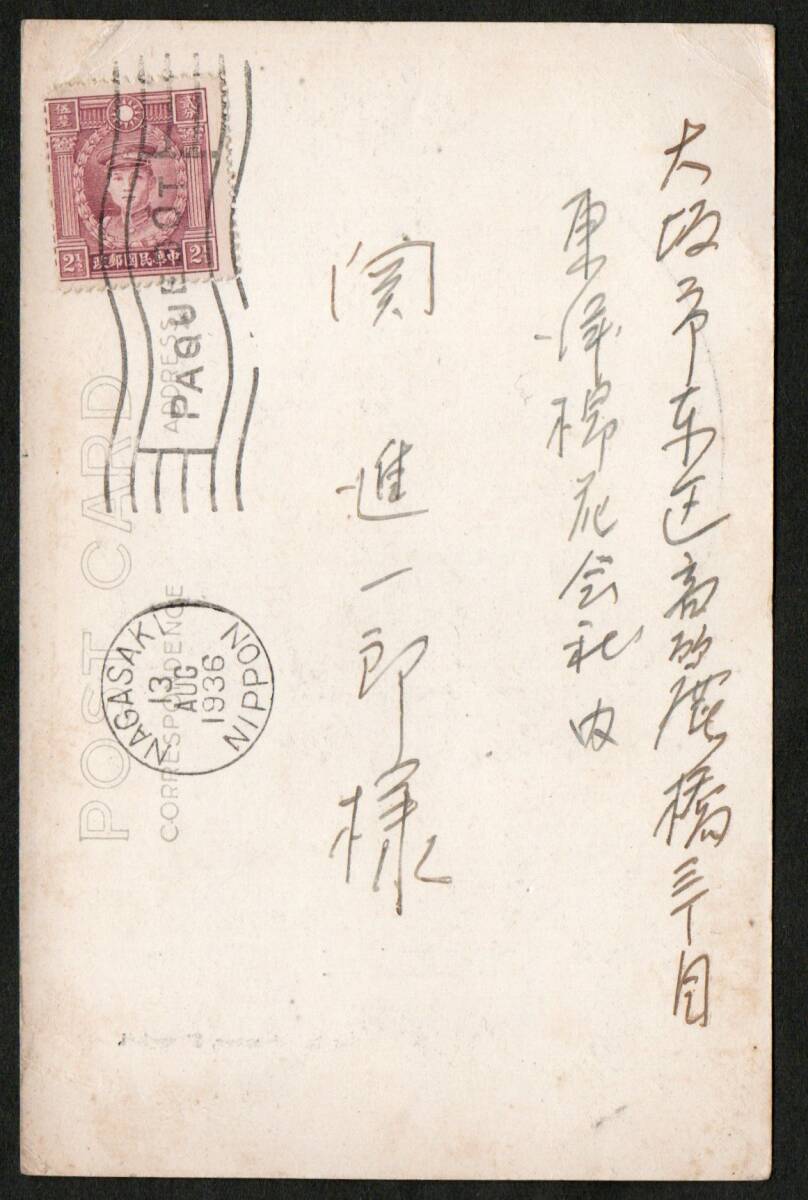 大阪市東区高麗橋三丁目
東洋棉花会社内
関進一郎様
POST CARD
CORRESPONDENCE
ADDRESS
PAQUEBOT
NAGASAKI
13
AUG
1936
NIPPON
伍釐
貳分
2½
2½
政郵國民華中